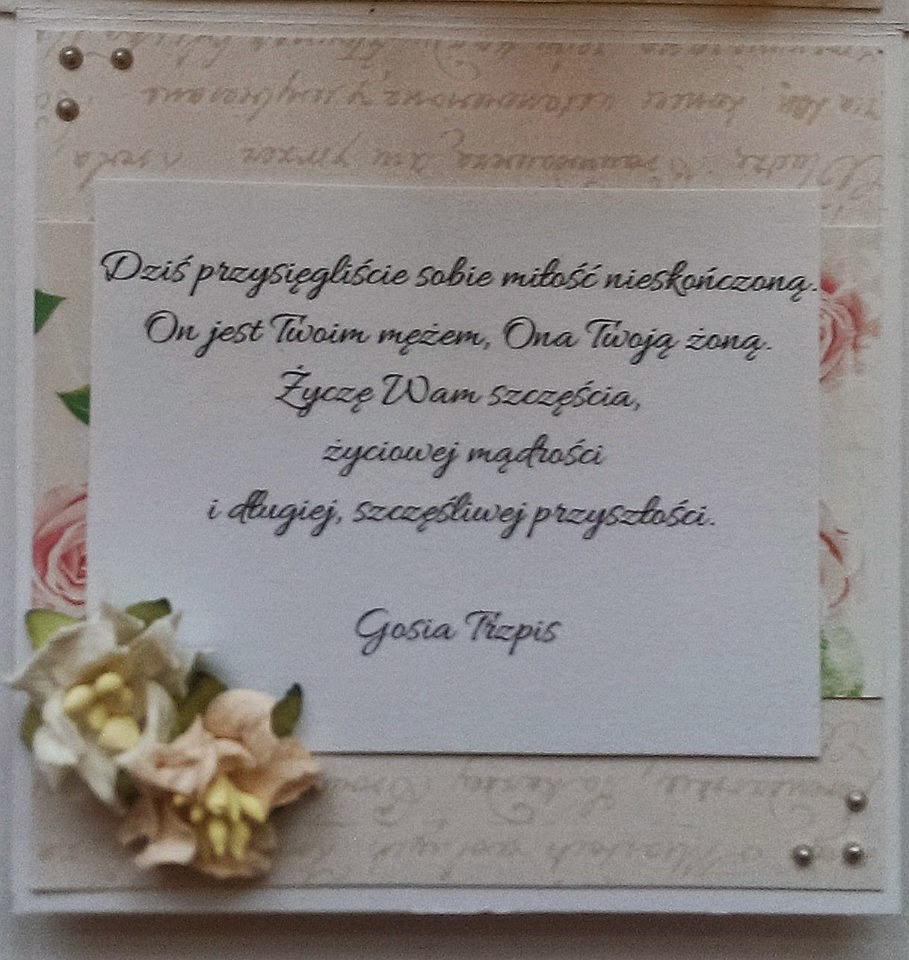 Dziś przysięgliście sobie miłość nieskończoną.
On jest Twoim mężem, Ona Twoją żoną.
Życzę Wam szczęścia,
życiowej mądrości
i długiej, szczęśliwej przyszłości.
Gosia Trzpis